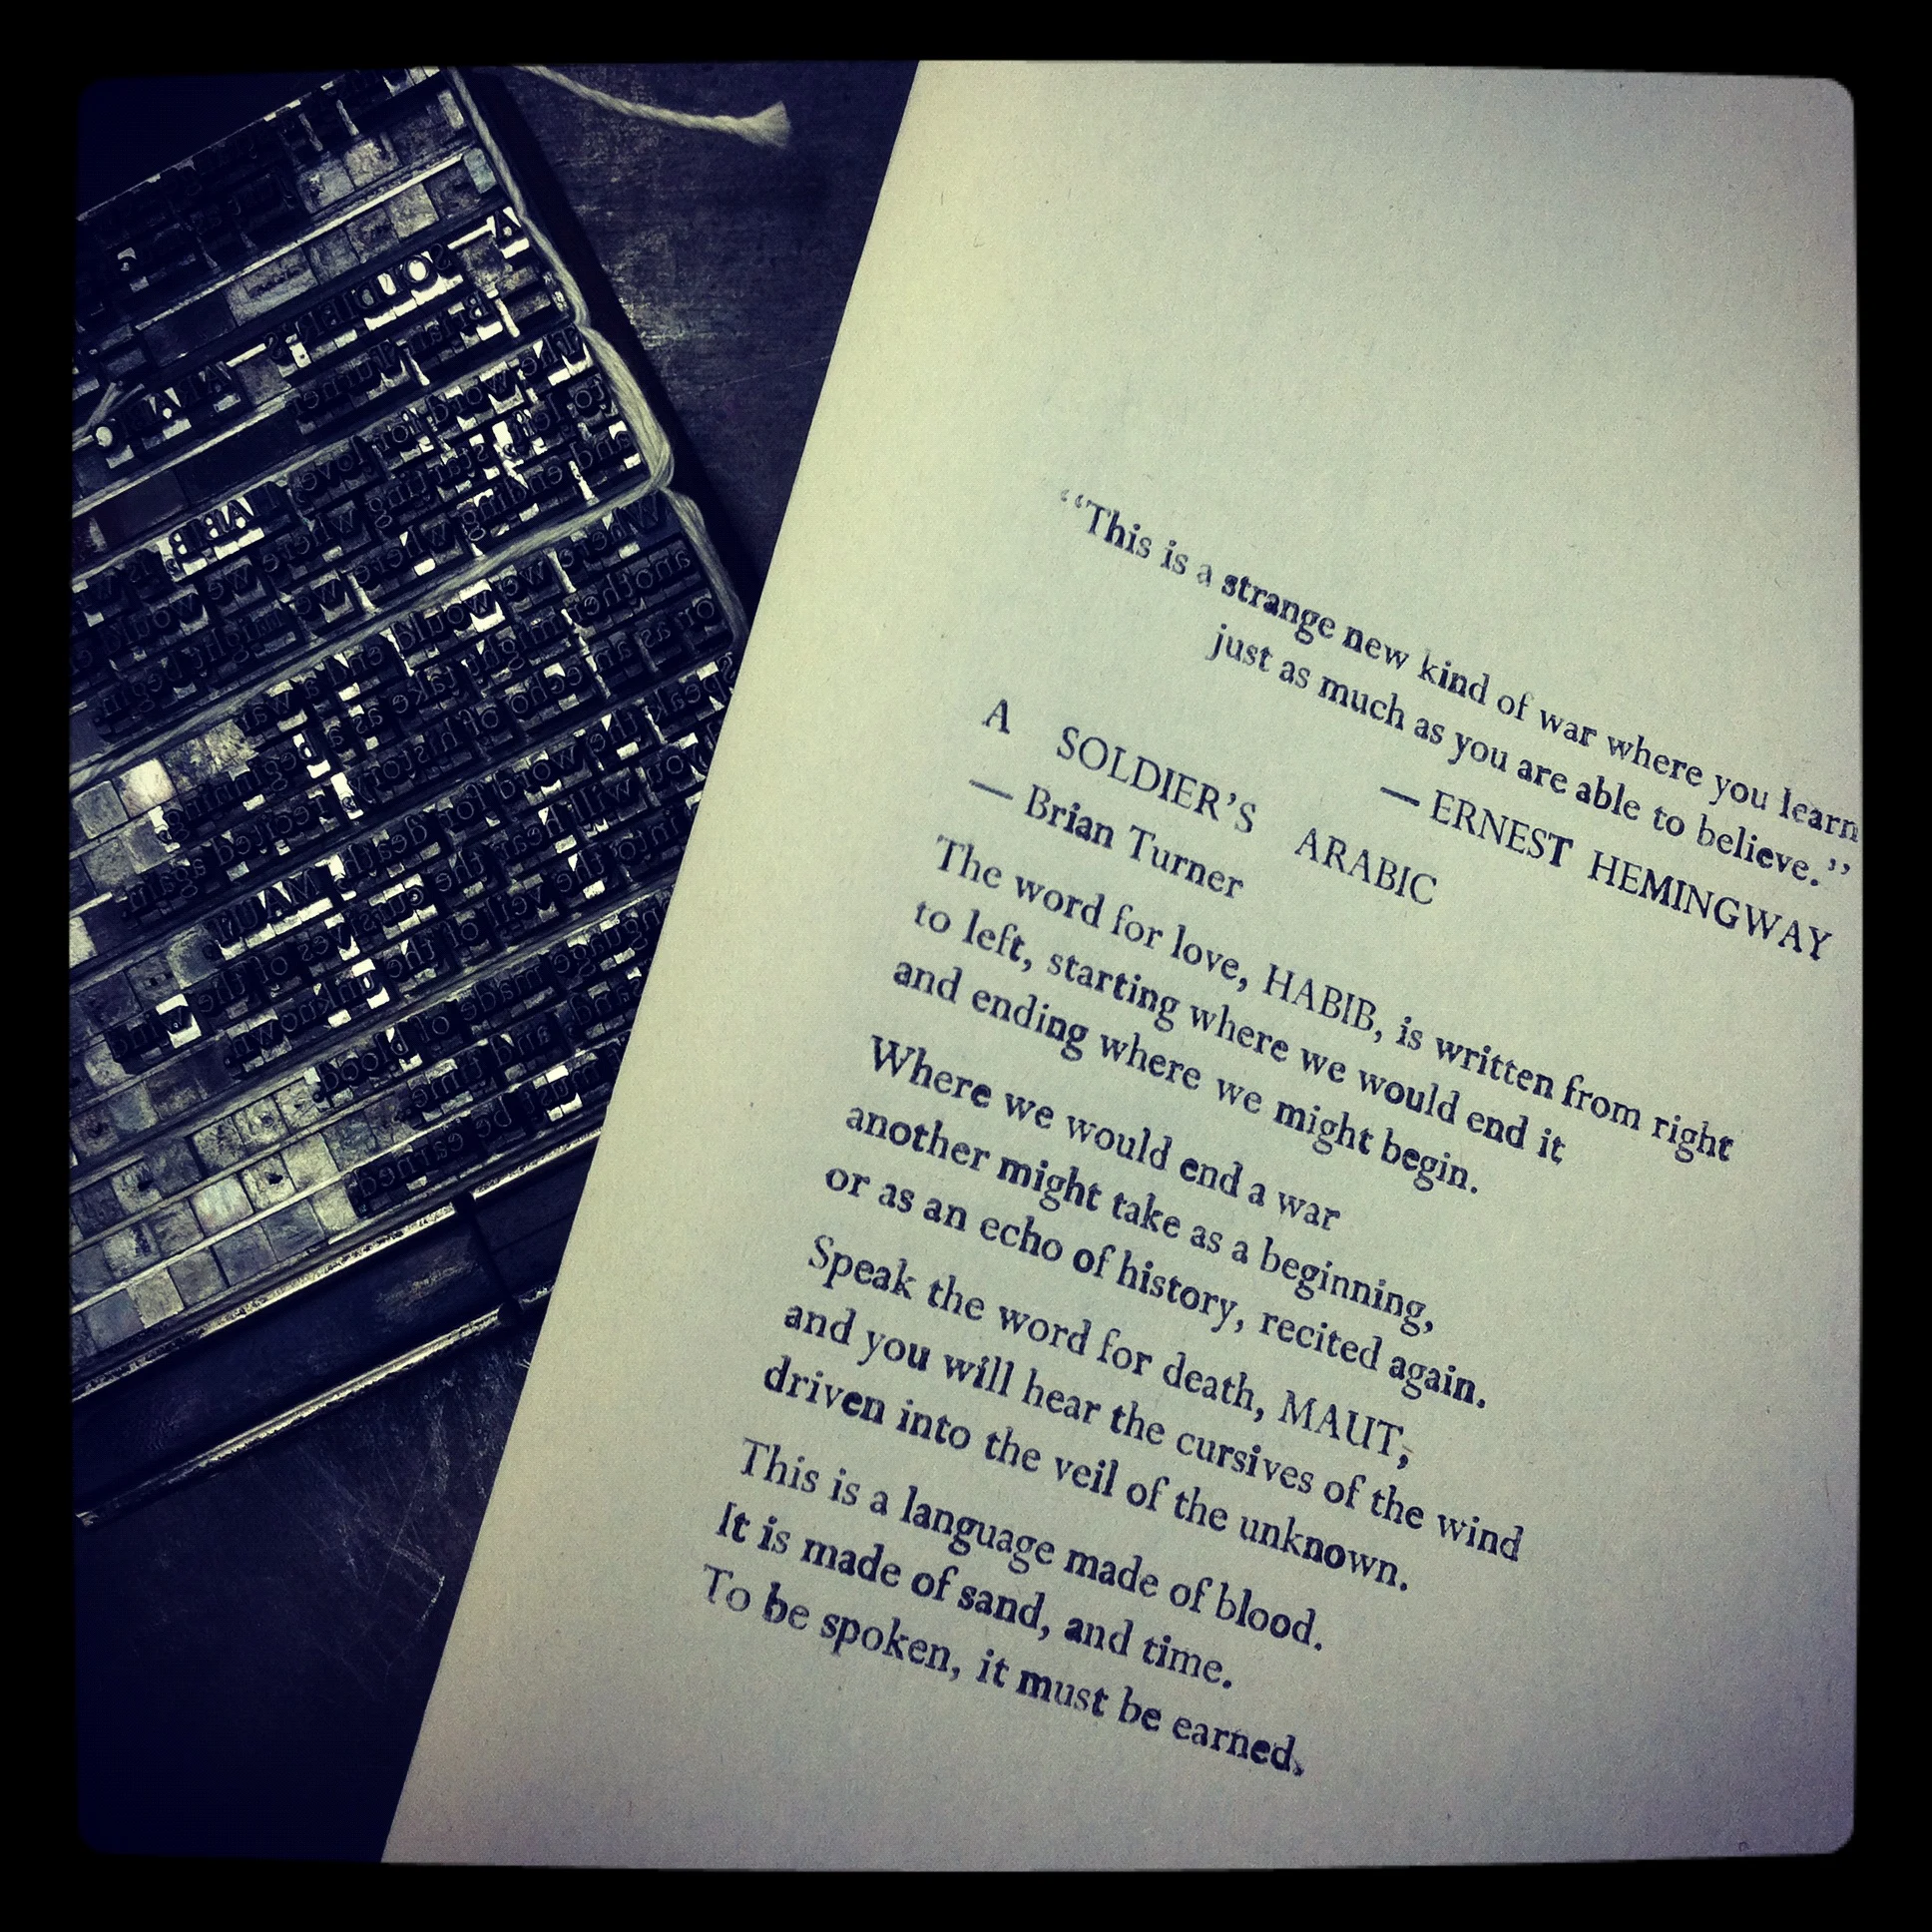 “This is a strange new kind of war where you learn
just as much as you are able to believe.”
— ERNEST HEMINGWAY
A SOLDIER’S ARABIC
— Brian Turner
The word for love, HABIB, is written from right
to left, starting where we would end it
and ending where we might begin.
Where we would end a war
another might take as a beginning,
or as an echo of history, recited again.
Speak the word for death, MAUT,
and you will hear the cursives of the wind
driven into the veil of the unknown.
This is a language made of blood.
It is made of sand, and time.
To be spoken, it must be earned.